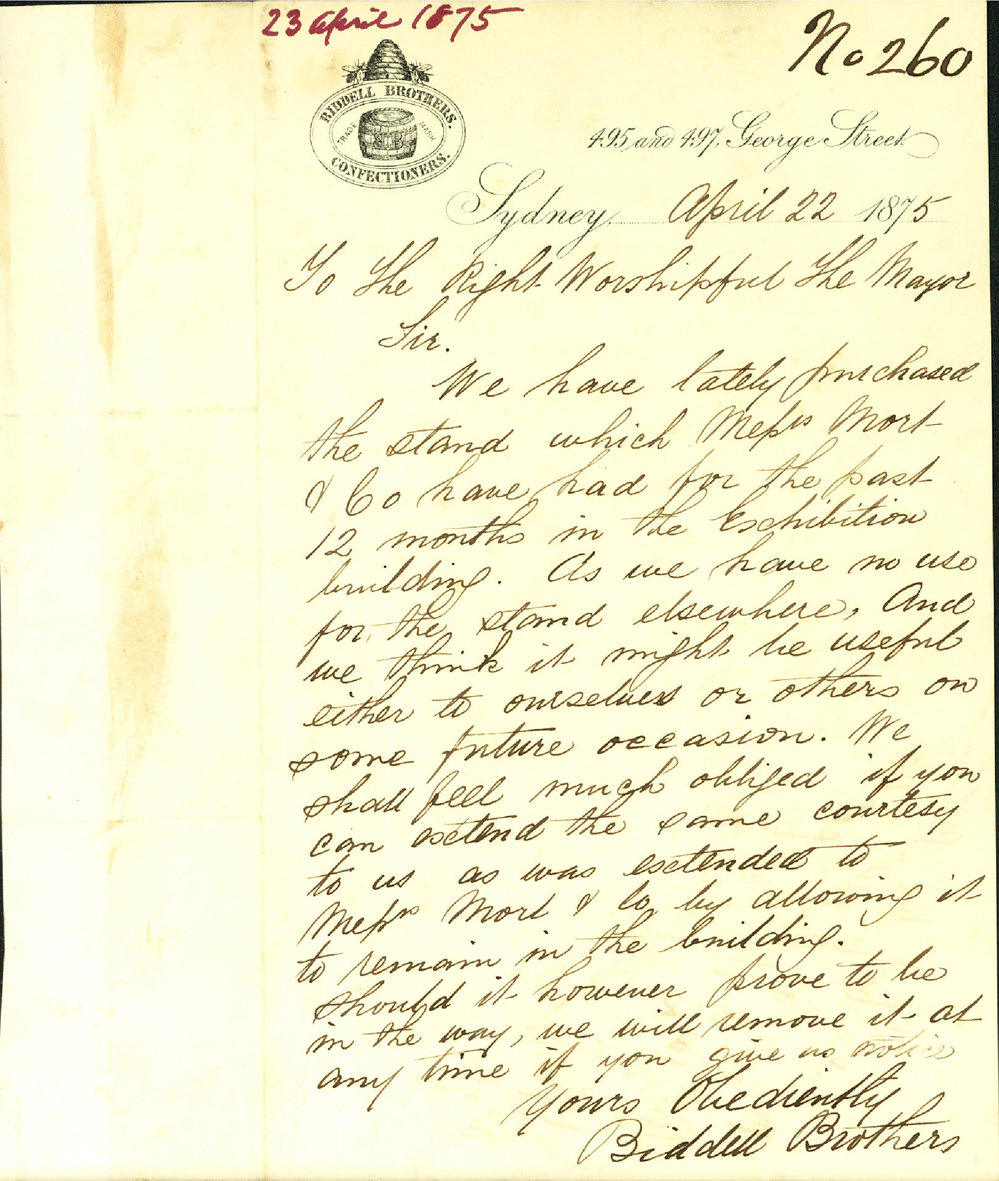 23 April 1875
No 260
BIDDELL BROTHERS.
TRADE MARK
CONFECTIONERS.
495 and 497, George Street
Sydney, April 22 1875
To The Right Worshipful The Mayor
Sir.
We have lately purchased
the stand which Messrs Mort
& Co have had for the past
12 months in the Exhibition
building. As we have no use
for, the stand elsewhere, And
we think it might be useful
either to ourselves or others on
some future occasion. We
shall feel much obliged if you
can extend the same courtesy
to us as was extended to
Messrs Mort & Co by allowing it
to remain in the building.
should it however prove to be
in the way, we will remove it at
any time if you give us notice
Yours Obediently
Biddell Brothers